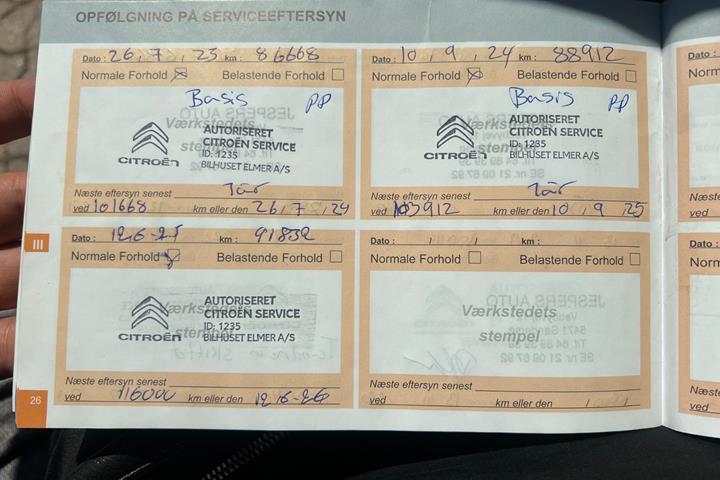 OPFØLGNING PÅ SERVICEEFTERSYN
Dato : 26, 7, 23 km : 86668
Normale Forhold Belastende Forhold
Basis PP
Værkstedets
stempel
AUTORISERET
CITROËN SERVICE
ID: 1235
BILHUSET ELMER A/S
CITROËN
Næste eftersyn senest 1år
ved 101668 km eller den 26, 7, 24
Dato : 10, 9, 24 km : 88912
Normale Forhold Belastende Forhold
Basis PP
Værkstedets
stempel
AUTORISERET
CITROËN SERVICE
ID: 1235
BILHUSET ELMER A/S
CITROËN
Næste eftersyn senest 1år
ved 103912 km eller den 10, 9, 25
III
Dato : 12.6-25 km : 91832
Normale Forhold Belastende Forhold
Værkstedets
stempel
AUTORISERET
CITROËN SERVICE
ID: 1235
BILHUSET ELMER A/S
CITROËN
Næste eftersyn senest
ved 116000 km eller den 12.6-26
Dato : / / km :
Normale Forhold Belastende Forhold
Værkstedets
stempel
Næste eftersyn senest
ved km eller den / /
26
Dato
Norma
Næste
ved
Dato :
Norma
Næst
ved